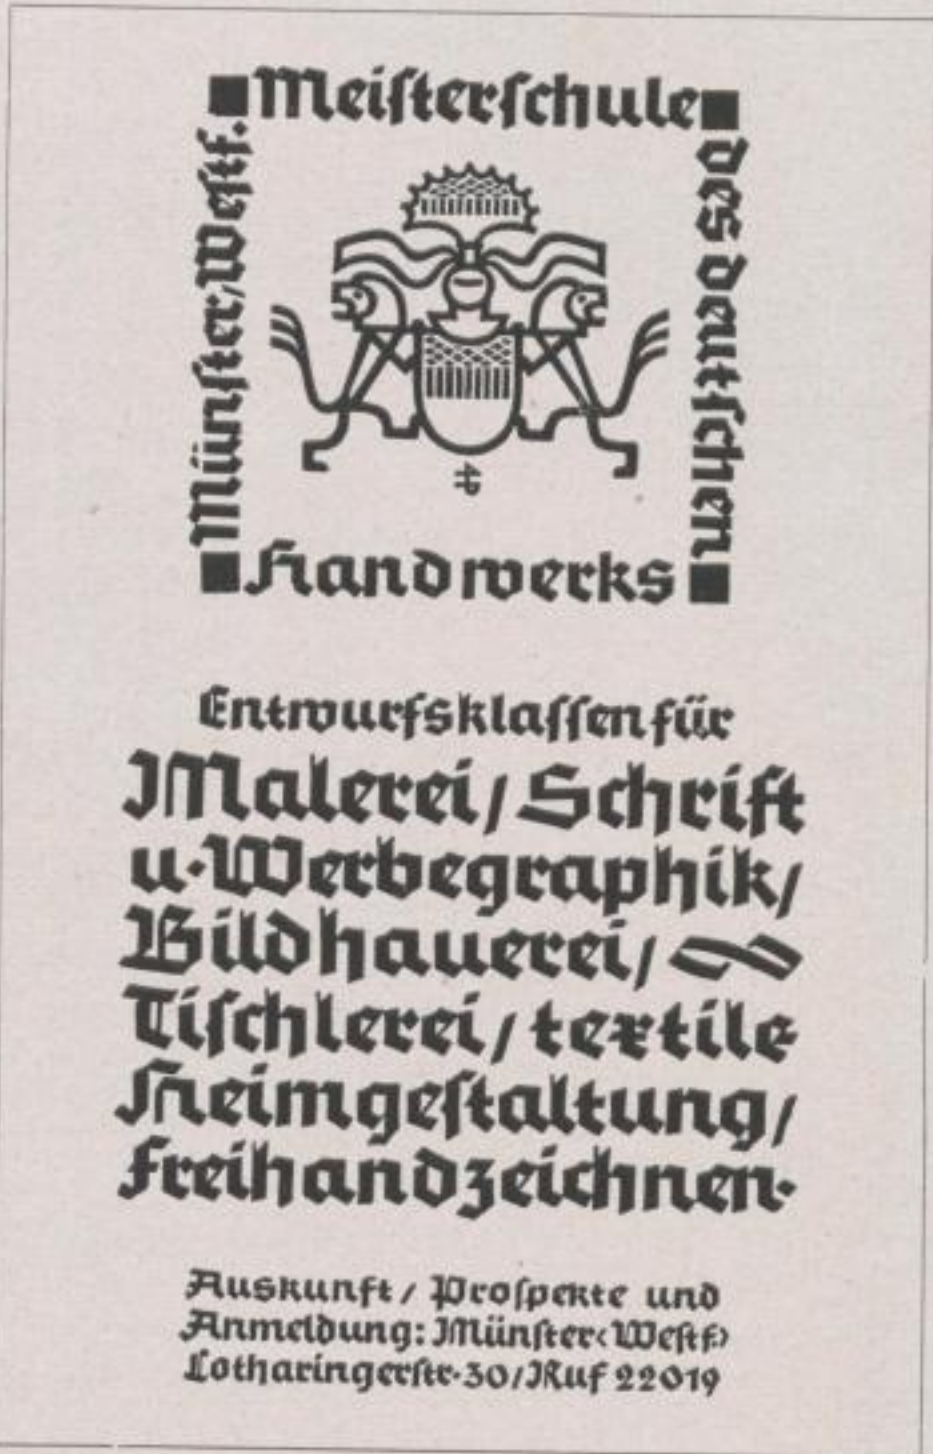 Meiſterſchule
des deutſchen
Handwerks
Münſter, Weſtf.
Entwurfsklaſſen für
Malerei / Schrift
u. Werbegraphik /
Bildhauerei /
Tiſchlerei / textile
Heimgeſtaltung /
Freihandzeichnen.
Auskunft / Proſpekte und
Anmeldung: Münſter (Weſtf.)
Lotharingerſtr. 30 / Ruf 22019